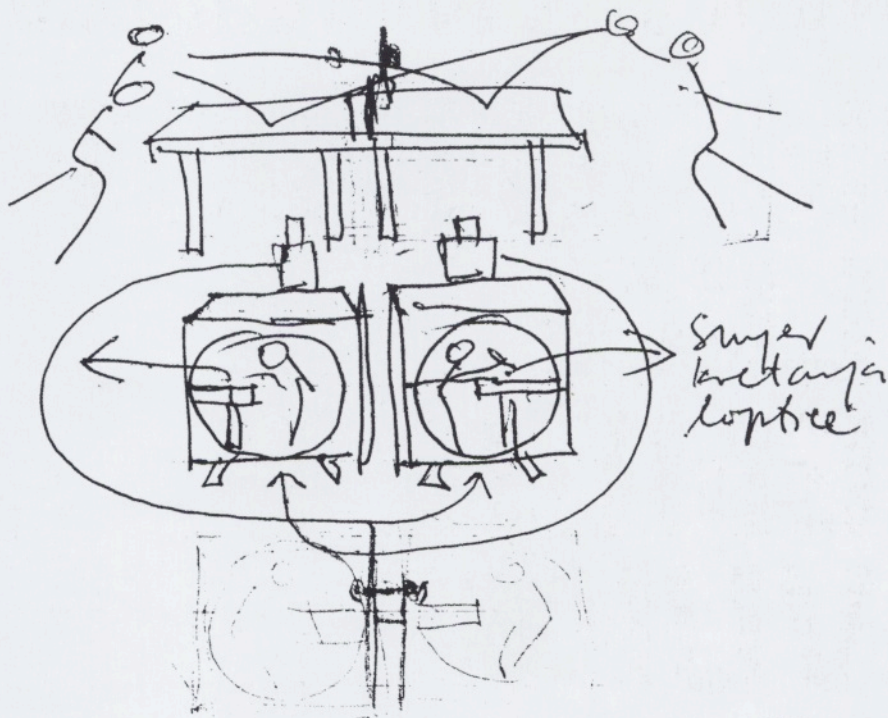 smjer
kretanja
loptice